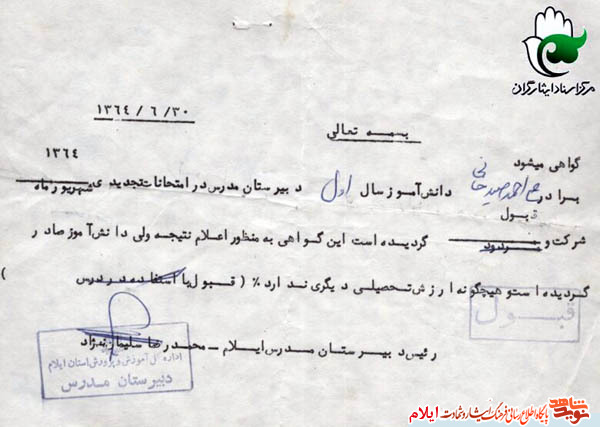 مرکز اسناد ایثارگران
۱۳۶۴ / ۶ / ۳۰
بسمه تعالی
گواهی میشود
برادر احمد صیدخانی دانش‌آموز سال اول دبیرستان مدرس در امتحانات تجدیدی شهریور ماه ۱۳۶۴
شرکت و قبول مردود گردیده است این گواهی به منظور اعلام نتیجه ولی دانش آموز صادر
گردیده است و هیچگونه ارزش تحصیلی دیگری ندارد٪ ( قبول با استفاده در درس )
قبول
رئیس دبیرستان مدرس ایلام – محمدرضا سلیمان نژاد
اداره کل آموزش و پرورش استان ایلام
دبیرستان مدرس
نوید شاهد پایگاه اطلاع رسانی فرهنگ ایثار و شهادت ایلام